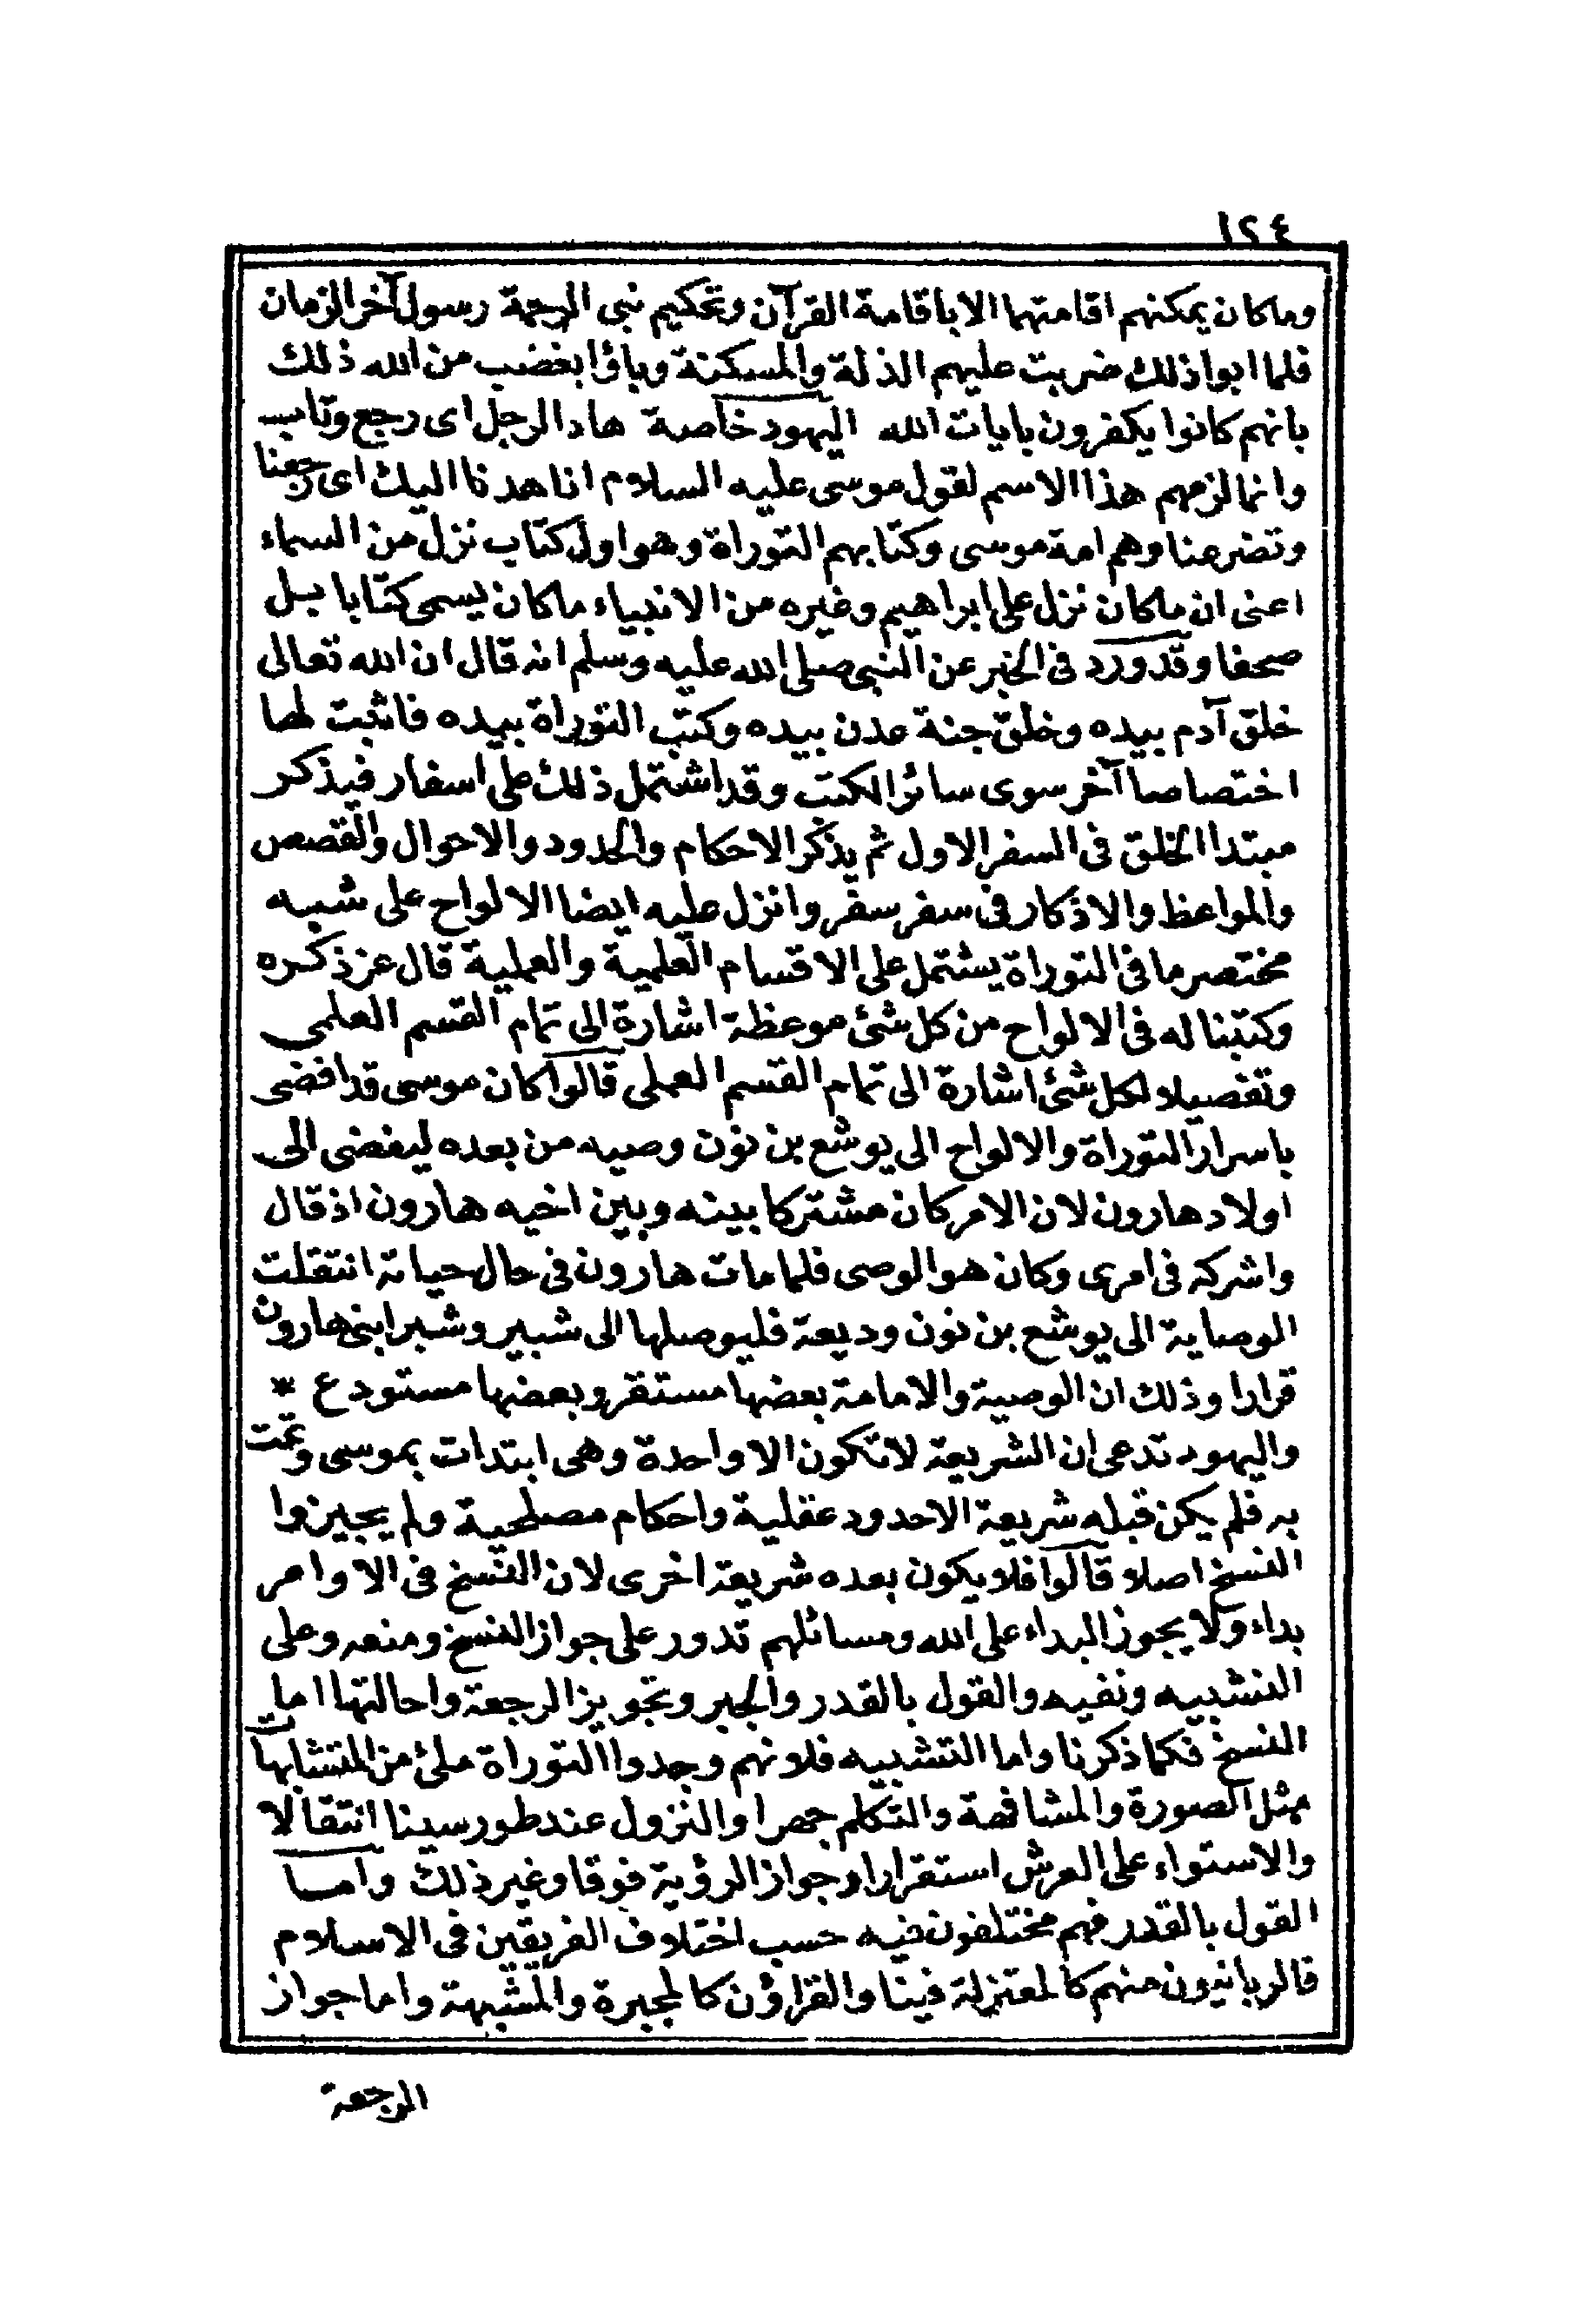 ١٢٤
وما كان يمكنهم اقامتهما الا باقامة القرآن وتحكيم نبى الرحمة رسول آخر الزمان
فلما ابوا ذلك ضربت عليهم الذلة والمسكنة وباؤا بغضب من الله ذلك
بانهم كانوا يكفرون بايات الله اليهود خاصة هاد الرجل اى رجع وتاب
وانما لزمهم هذا الاسم لقول موسى عليه السلام انا هدنا اليك اى رجعنا
وتضرعنا وهم امة موسى وكتابهم التوراة وهو اول كتاب نزل من السماء
اعنى ان ما كان نزل على ابراهيم وغيره من الانبياء ما كان يسمى كتابا بل
صحفا وقد ورد فى الخبر عن النبى صلى الله عليه وسلم انه قال ان الله تعالى
خلق آدم بيده وخلق جنة عدن بيده وكتب التوراة بيده فاثبت لها
اختصاصا آخر سوى سائر الكتب وقد اشتمل ذلك على اسفار فيذكر
مبتدا الخلق فى السفر الاول ثم يذكر الاحكام والحدود والاحوال والقصص
والمواعظ والاذكار فى سفر سفر وانزل عليه ايضا الالواح على شبه
مختصر ما فى التوراة يشتمل على الاقسام العلمية والعملية قال عز ذكره
وكتبنا له فى الالواح من كل شئ موعظة اشارة الى تمام القسم العلمى
وتفصيلا لكل شئ اشارة الى تمام القسم العملى قالوا كان موسى قد افضى
باسرار التوراة والالواح الى يوشع بن نون وصيه من بعده ليفضى الى
اولاد هارون لان الامر كان مشتركا بينه وبين اخيه هارون اذ قال
واشركه فى امرى وكان هو الوصى فلما مات هارون فى حال حياته انتقلت
الوصاية الى يوشع بن نون وديعة فليوصلها الى شبير وشبر ابنى هارون
قرارا وذلك ان الوصية والامامة بعضها مستقر وبعضها مستودع *
واليهود تدعى ان الشريعة لا تكون الا واحدة وهى ابتدات بموسى وتمت
به فلم يكن قبله شريعة الا حدود عقلية واحكام مصلحية ولم يجيزوا
النسخ اصلا قالوا فلا يكون بعده شريعة اخرى لان النسخ فى الاوامر
بداء ولا يجوز البداء على الله ومسائلهم تدور على جواز النسخ ومنعه وعلى
التشبيه ونفيه والقول بالقدر والجبر وتجويز الرجعة واحالتها اما
النسخ فكما ذكرنا واما التشبيه فلانهم وجدوا التوراة ملئ من المتشابهات
مثل الصورة والمشافهة والتكلم جهرا والنزول عند طور سينا انتقالا
والاستواء على العرش استقرارا وجواز الرؤية فوقا وغير ذلك واما
القول بالقدر فهم مختلفون فيه حسب اختلاف الفريقين فى الاسلام
فالربانيون منهم كالمعتزلة فينا والقراؤن كالمجبرة والمشبهة واما جواز
الرجعة